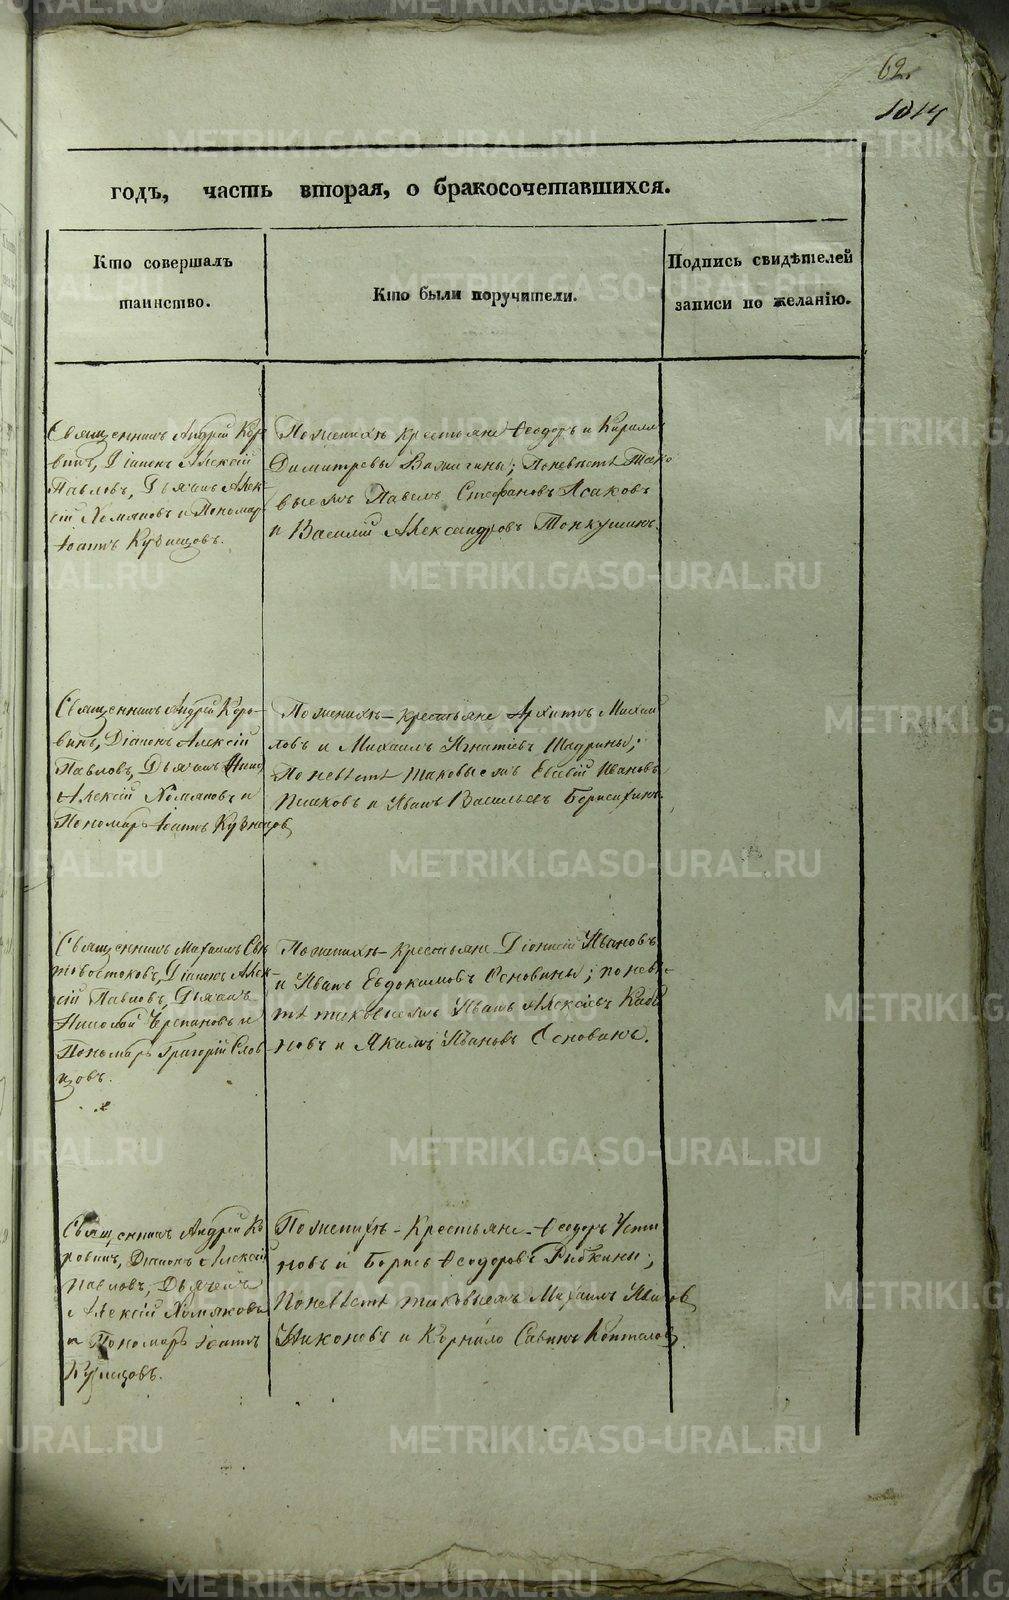 METRIKI.GASO-URAL.RU
62.
1014
годъ, часть вторая, о бракосочетавшихся.
Кто совершалъ
таинство.
Кто были поручители.
Подпись свидѣтелей
записи по желанію.
Священникъ Андрей Кор-
винъ, Діаконъ Алексій
Павловъ, Дьячекъ Алек-
сій Хомяковъ и Пономарь
Іоаннъ Кузнецовъ.
По женихѣ крестьяне Ѳеодоръ и Кириллъ
Димитревы Важигины; По невѣстѣ Тако
выежъ Павелъ Стефановъ Исаковъ
и Василій Александровъ Тонкушинъ.
Священникъ Андрей Коро-
винъ, Діаконъ Алексій
Павловъ, Дьячекъ
Алексій Хомяковъ и
Пономарь Іоаннъ Кузнецовъ
По женихѣ - крестьяне Архипъ Михай
ловъ и Михаилъ Игнатіевъ Шадрины;
По невѣстѣ таковыежъ Евсевій Ивановъ
Пешковъ и Иванъ Васильевъ Борисихинъ.
Священникъ Михаилъ Свѣ
товостоковъ, Діаконъ Алек-
сій Павловъ, Дьячекъ
Николай Черепановъ и
Пономарь Григорій Слов-
цовъ.
По женихѣ - крестьяне Діонисій Ивановъ
и Иванъ Евдокимовъ Сеновины; по невѣс-
тѣ таковыежъ Иванъ Алексіевъ Каба
новъ и Якимъ Ивановъ Сеновинъ.
Священникъ Андрей Ко
ровинъ, Діаконъ Алексій
Павловъ, Дьячекъ
Алексій Хомяковъ
и Пономарь Іоаннъ
Кузнецовъ.
По женихѣ - Крестьяне - Ѳеодоръ Усти
новъ и Борисъ Ѳеодоровъ Рыбкины;
По невѣстѣ таковыежъ Михаилъ Иванов
Никоновъ и Корнило Савинъ Коптеловъ.